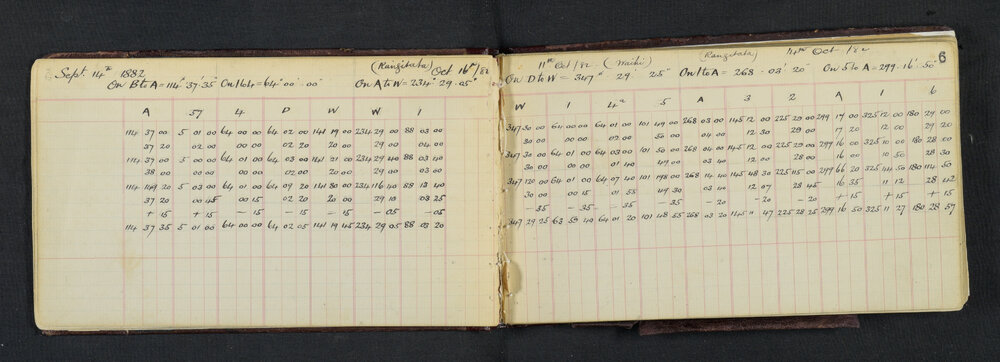 Sept. 14th 1882
(Rangitata)
Oct 16th/82
On B to A = 114° 37' 35" On 1 to 4 = 64° 00' 00"
On A to W = 234° 29' 05"
A 57 4 D W W 1
114 37 00 5 01 00 64 00 00 64 02 00 141 19 00 234 29 00 88 03 00
37 20 02 00 00 00 02 20 20 00 29 00 04 00
114 37 00 5 00 00 64 01 00 64 03 00 141 21 00 234 29 40 88 03 40
38 00 00 00 00 00 02 00 20 00 29 00 03 00
114 149 20 5 03 00 64 01 00 64 09 20 141 80 00 234 116 40 88 13 40
37 20 00 45 00 15 02 20 20 00 29 10 03 25
+ 15 + 15 - 15 - 15 - 15 - 05 - 05
114 37 35 5 01 00 64 00 00 64 02 05 141 19 45 234 29 05 88 03 20
11th Oct/82 (Waihi)
(Rangitata) 14th Oct/82
6
On D to W = 347° 29' 25" On 1 to A = 268° 03' 20" On 5 to A = 299° 16' 50"
W 1 4a 5 A 3 2 A 1 6
347 30 00 64 00 00 64 01 00 101 49 00 268 03 00 145 12 00 225 29 00 299 17 00 325 12 00 180 29 00
30 00 00 00 02 00 50 00 04 00 12 30 29 00 17 20 12 00 29 20
347 30 00 64 01 00 64 03 00 101 50 00 268 04 00 145 12 00 225 29 00 299 16 00 325 10 00 180 28 00
30 00 00 00 01 40 49 00 03 40 12 00 28 00 16 00 10 50 28 30
347 120 00 64 01 00 64 07 40 101 198 00 268 14 40 145 48 30 225 115 00 299 66 20 325 44 50 180 114 50
30 00 00 15 01 55 49 30 03 40 12 07 28 45 16 35 11 12 28 42
- 35 - 35 - 35 - 35 - 20 - 20 - 20 + 15 + 15 + 15
347 29 25 63 59 40 64 01 20 101 48 55 268 03 20 145 11 47 225 28 25 299 16 50 325 11 27 180 28 57